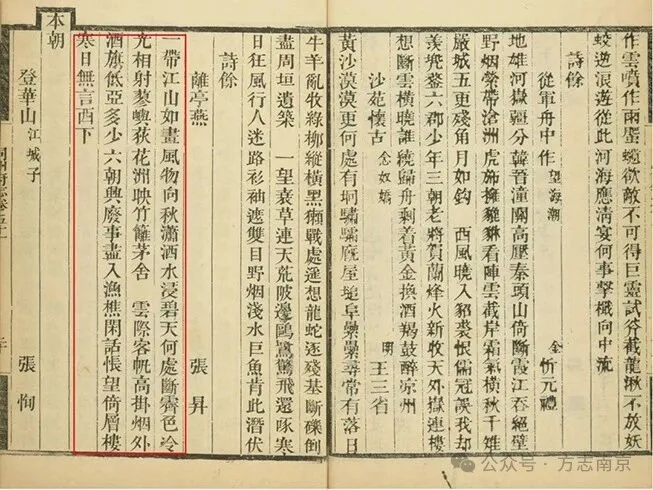 作雲噴作雨蜃蜿欲敵不可得巨靈試斧截龍湫不放妖
蛟逆浪遊從此河海應清宴何事擊檝向中流
詩餘
從軍舟中作 望海潮 金 忻元禮
地雄河嶽疆分韓晉潼關高壓秦頭山倚斷霞江吞絕壁
野烟縈帶滄洲虎斾擁貔貅看陣雲截岸霜氣橫秋千雉
嚴城五更殘角月如鈎 西風曉入貂裘恨儒冠誤我却
羨兜鍪六郡少年三朝老將賀蘭烽火新收天外嶽連樓
想斷雲橫曉誰繞歸舟剩着黃金換酒羯鼓醉凉州
沙苑懷古 念奴嬌 明 王三省
黃沙漠漠更何處有坰驌驦廐屋堤阜纍纍尋常有落日
牛羊亂牧綠柳縱橫黑獺戰處遙想龍蛇逐殘基斷磔倒
盡周垣遺築 一望衰草連天荒陂邊鷗鷺驚飛還啄寒
日狂風行人迷路衫袖遮雙目野烟淺水巨魚肯此潛伏
詩餘
離亭燕 張昇
一帶江山如畫風物向秋瀟洒水浸碧天何處斷霽色冷
光相射蓼嶼荻花洲映竹籬茅舍 雲際客帆高掛烟外
酒旗低亞多少六朝興廢事盡入漁樵閑話悵望倚層樓
寒日無言西下
本朝
登華山 江城子 張恂
公众号 · 方志南京